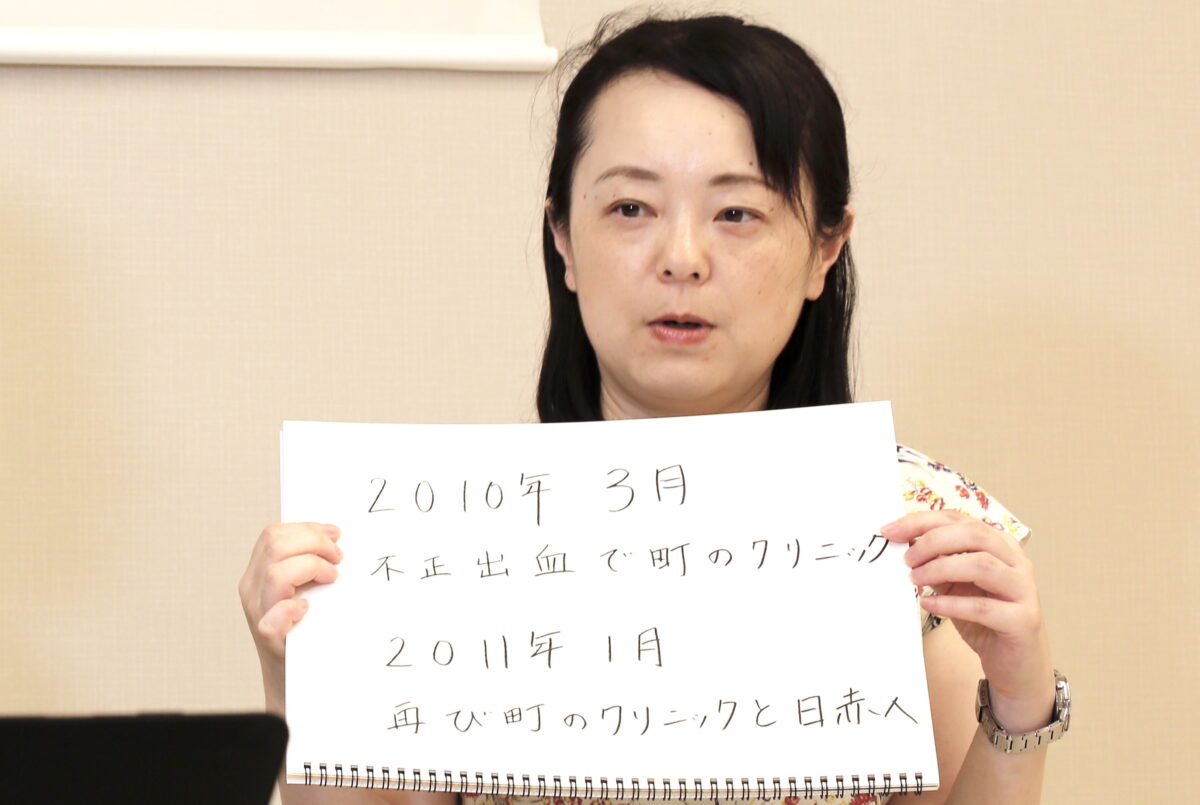 2010年 3月
不正出血で町のクリニック
2011年 1月
再び町のクリニックと日赤へ